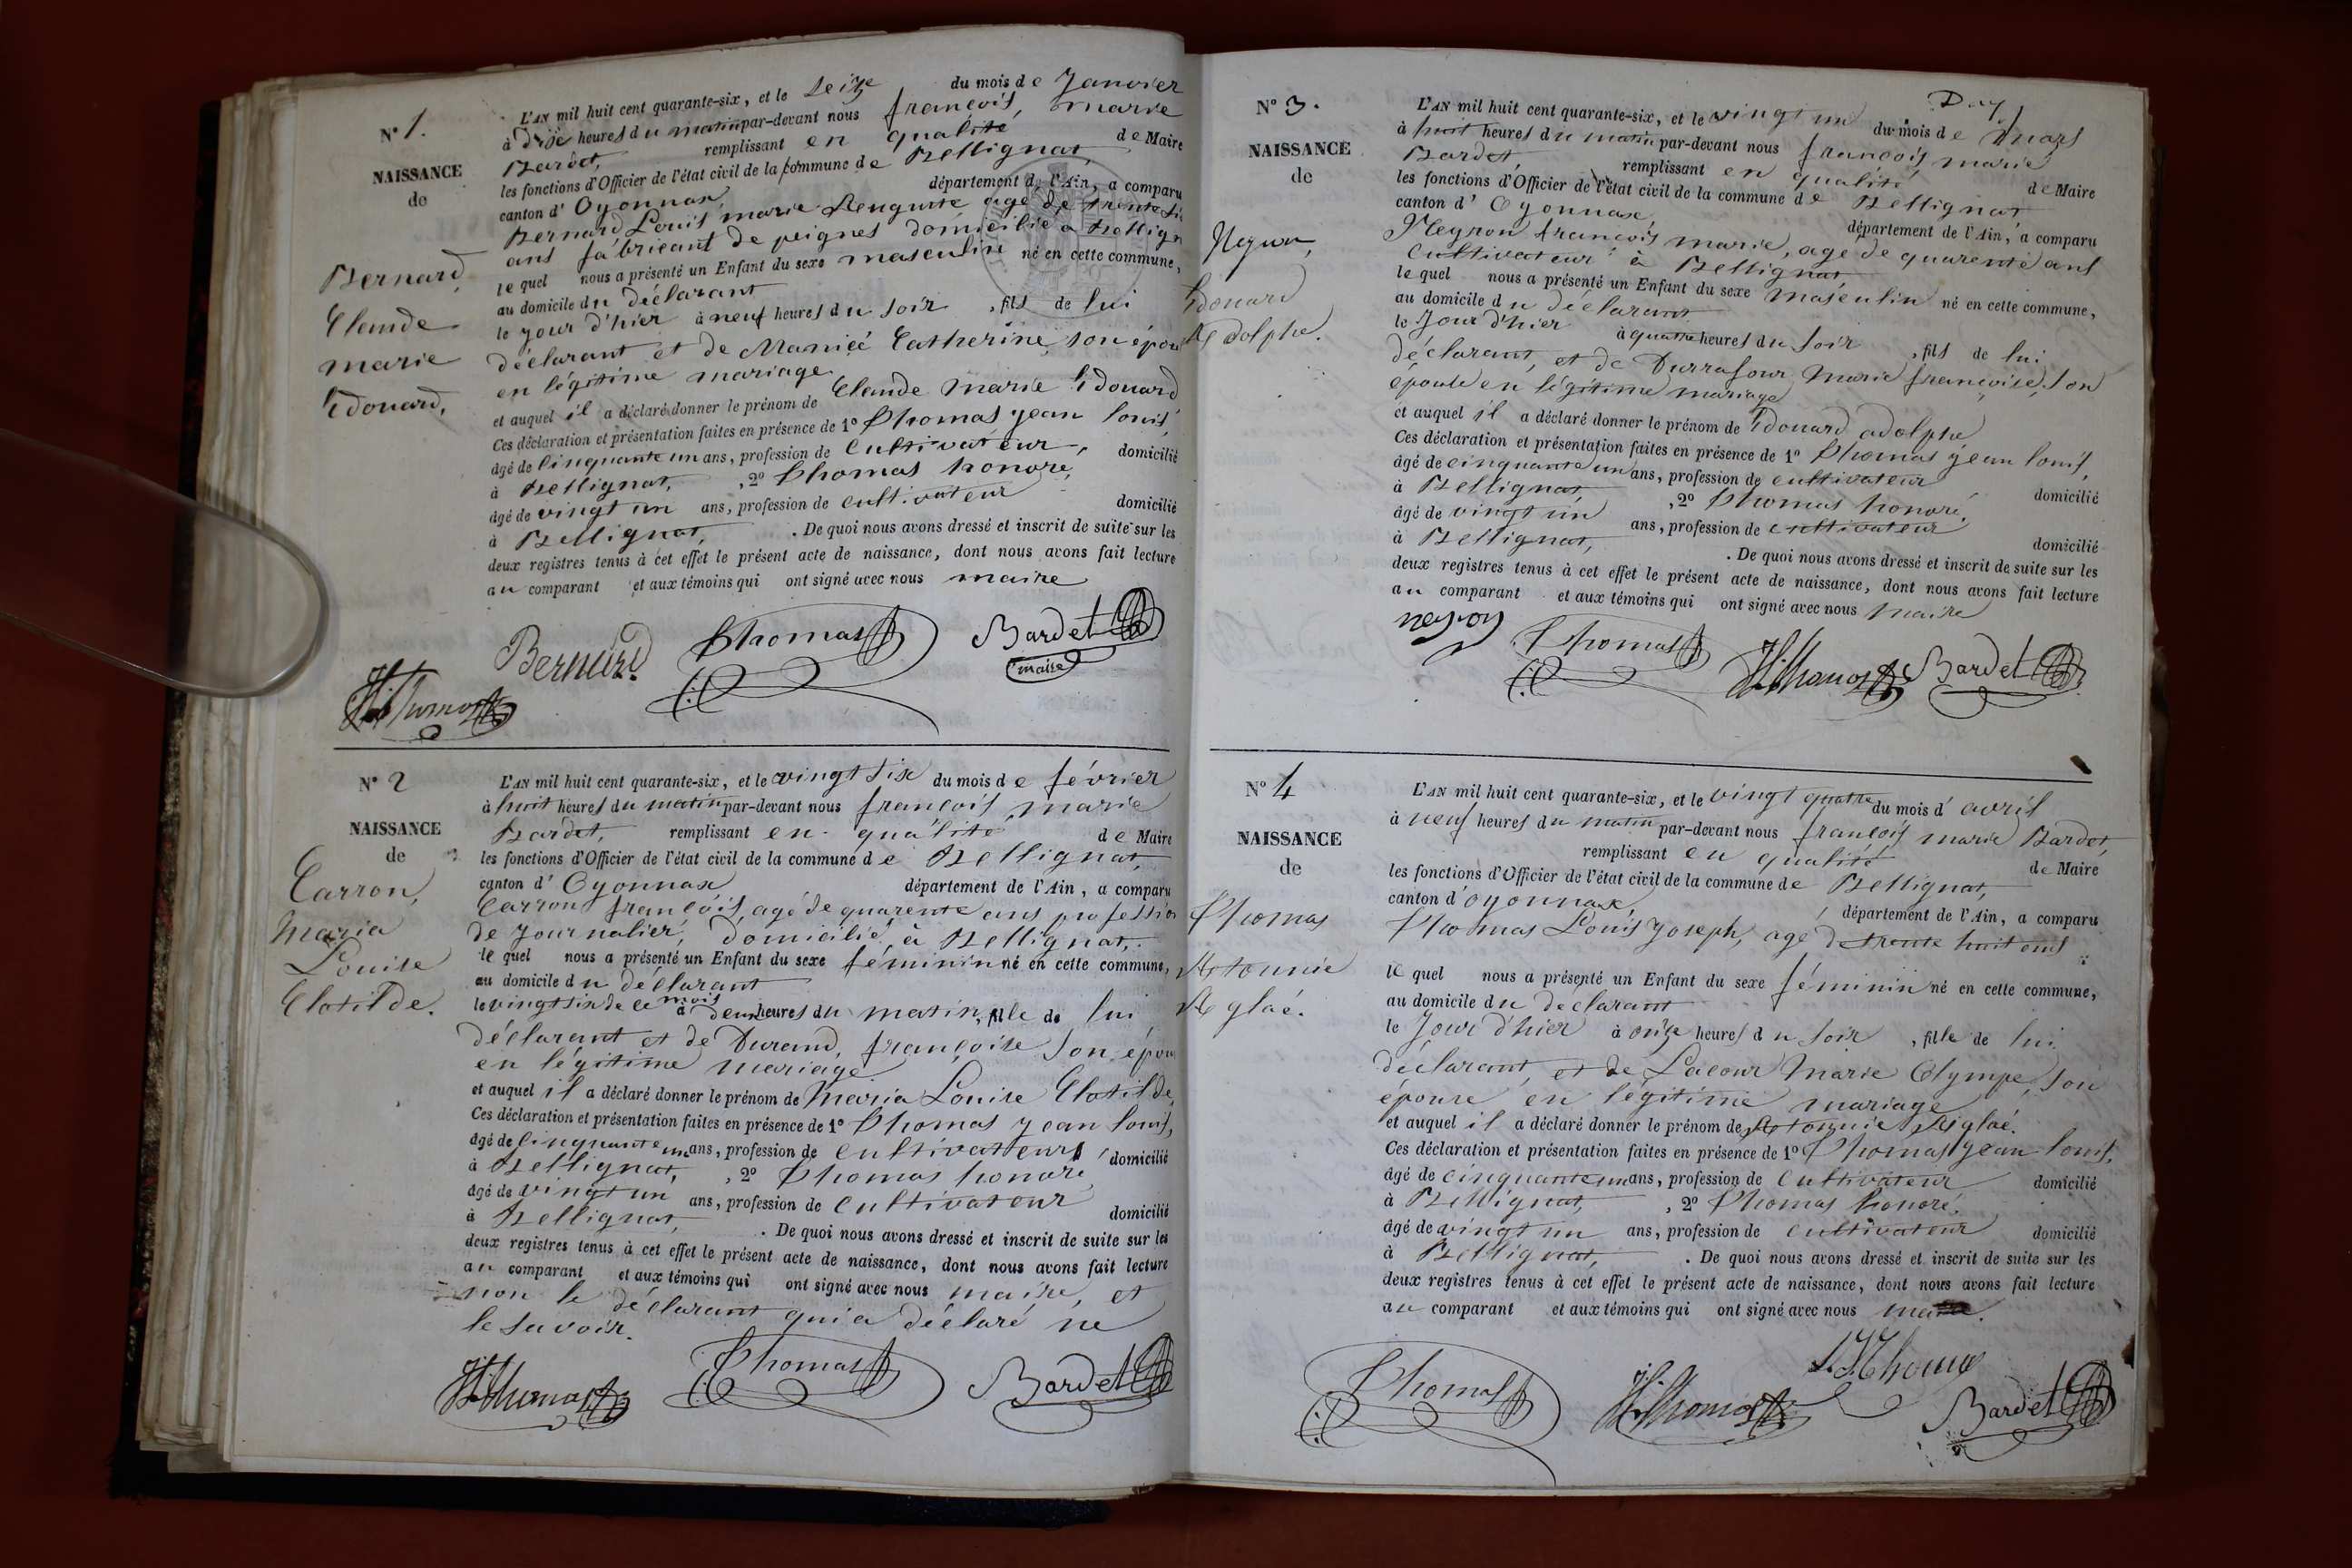 N° 1.
NAISSANCE
de
Bernard,
Claude
marie
Edouard,
L'AN mil huit cent quarante-six, et le seize du mois de Janvier
à dix heures du matin par-devant nous françois, marie
Bardet, remplissant en qualité de Maire
les fonctions d'Officier de l'état civil de la commune de Bellignat,
canton d'Oyonnax, département de l'Ain, a comparu
Bernard Louis marie Auguste agé de trente six
ans fabricant de peignes domicilié à Bellign
le quel nous a présenté un Enfant du sexe masculin né en cette commune,
au domicile du déclarant
le jour d'hier à neuf heures du soir, fils de lui
déclarant et de Catherine, son épou
en légitime mariage
et auquel il a déclaré donner le prénom de Claude marie Edouard
Ces déclaration et présentation faites en présence de 1° Thomas jean louis,
âgé de Cinquante un ans, profession de Cultivateur, domicilié
à Bellignat, 2° Thomas honoré,
âgé de vingt un ans, profession de cultivateur domicilié
à Bellignat, . De quoi nous avons dressé et inscrit de suite sur les
deux registres tenus à cet effet le présent acte de naissance, dont nous avons fait lecture
au comparant et aux témoins qui ont signé avec nous maire
Bernard Thomas Bardet
maire
H. Thomas
N° 2
NAISSANCE
de
Carron,
Maria
Louise
Clotilde.
L'AN mil huit cent quarante-six, et le vingt six du mois de février
à huit heures du matin par-devant nous françois, marie
Bardet, remplissant en qualité de Maire
les fonctions d'Officier de l'état civil de la commune de Bellignat,
canton d'Oyonnax département de l'Ain, a comparu
Carron françois, agé de quarente ans profession
de journalier, domicilié à Bellignat,
le quel nous a présenté un Enfant du sexe féminin né en cette commune,
au domicile du déclarant
le vingt six de ce mois à deux heures du matin, fille de lui
déclarant et de Durand, françoise son épou
en légitime mariage
et auquel il a déclaré donner le prénom de Maria Louise Clotilde,
Ces déclaration et présentation faites en présence de 1° Thomas jean louis,
âgé de Cinquante un ans, profession de cultivateur domicilié
à Bellignat, 2° Thomas honoré
âgé de vingt un ans, profession de Cultivateur domicilié
à Bellignat, . De quoi nous avons dressé et inscrit de suite sur les
deux registres tenus à cet effet le présent acte de naissance, dont nous avons fait lecture
au comparant et aux témoins qui ont signé avec nous maire, et
non le déclarant qui a déclaré ne
le savoir.
H. Thomas Thomas Bardet
N° 3.
NAISSANCE
de
Neyron,
Edouard
Adolphe.
L'AN mil huit cent quarante-six, et le vingt un du mois de Mars
à huit heures du matin par-devant nous françois, marie
Bardet, remplissant en qualité de Maire
les fonctions d'Officier de l'état civil de la commune de Bellignat
canton d'Oyonnax, département de l'Ain, a comparu
Neyron françois marie, agé de quarente ans
Cultivateur à Bellignat
le quel nous a présenté un Enfant du sexe masculin né en cette commune,
au domicile du déclarant
le Jour d'hier à quatre heures du soir, fils de lui
déclarant, et de Durrafour Marie françoise, son
épouse en légitime mariage
et auquel il a déclaré donner le prénom de Edouard adolphe
Ces déclaration et présentation faites en présence de 1° Thomas jean louis,
âgé de cinquante un ans, profession de cultivateur domicilié
à Bellignat, 2° Thomas honoré,
âgé de vingt un ans, profession de cultivateur domicilié
à Bellignat, . De quoi nous avons dressé et inscrit de suite sur les
deux registres tenus à cet effet le présent acte de naissance, dont nous avons fait lecture
au comparant et aux témoins qui ont signé avec nous maire
neyron Thomas H. Thomas Bardet
N° 4
NAISSANCE
de
Thomas
Antonnie
Aglaé.
L'AN mil huit cent quarante-six, et le vingt quatre du mois d'avril
à neuf heures du matin par-devant nous françois marie Bardet,
remplissant en qualité de Maire
les fonctions d'Officier de l'état civil de la commune de Bellignat,
canton d'oyonnax, département de l'Ain, a comparu
Thomas Louis Joseph, agé de trente huit ans
le quel nous a présenté un Enfant du sexe féminin né en cette commune,
au domicile du déclarant
le Jour d'hier à onze heures du soir, fille de lui
déclarant, et de Lacour Marie Olympe, son
épouse en légitime mariage
et auquel il a déclaré donner le prénom de Antonnie Aglaé.
Ces déclaration et présentation faites en présence de 1° Thomas jean louis,
âgé de cinquante un ans, profession de Cultivateur domicilié
à Bellignat, 2° Thomas honoré.
âgé de vingt un ans, profession de cultivateur domicilié
à Bellignat, . De quoi nous avons dressé et inscrit de suite sur les
deux registres tenus à cet effet le présent acte de naissance, dont nous avons fait lecture
au comparant et aux témoins qui ont signé avec nous maire.
L. J. Thomas
Thomas H. Thomas Bardet